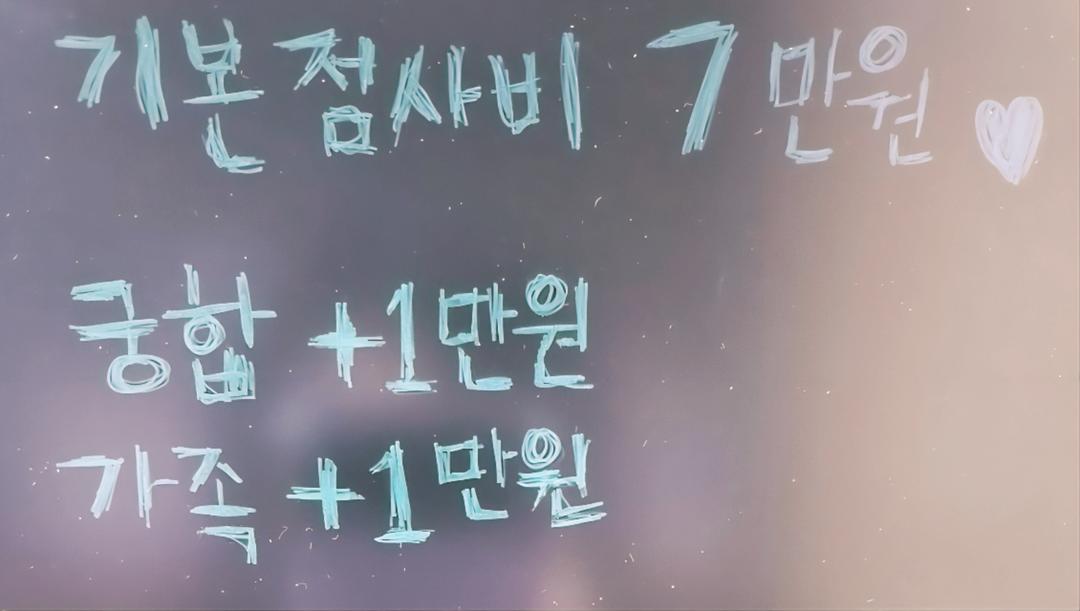 기본 점사비 7만원 ♥
궁합 +1만원
가족 +1만원